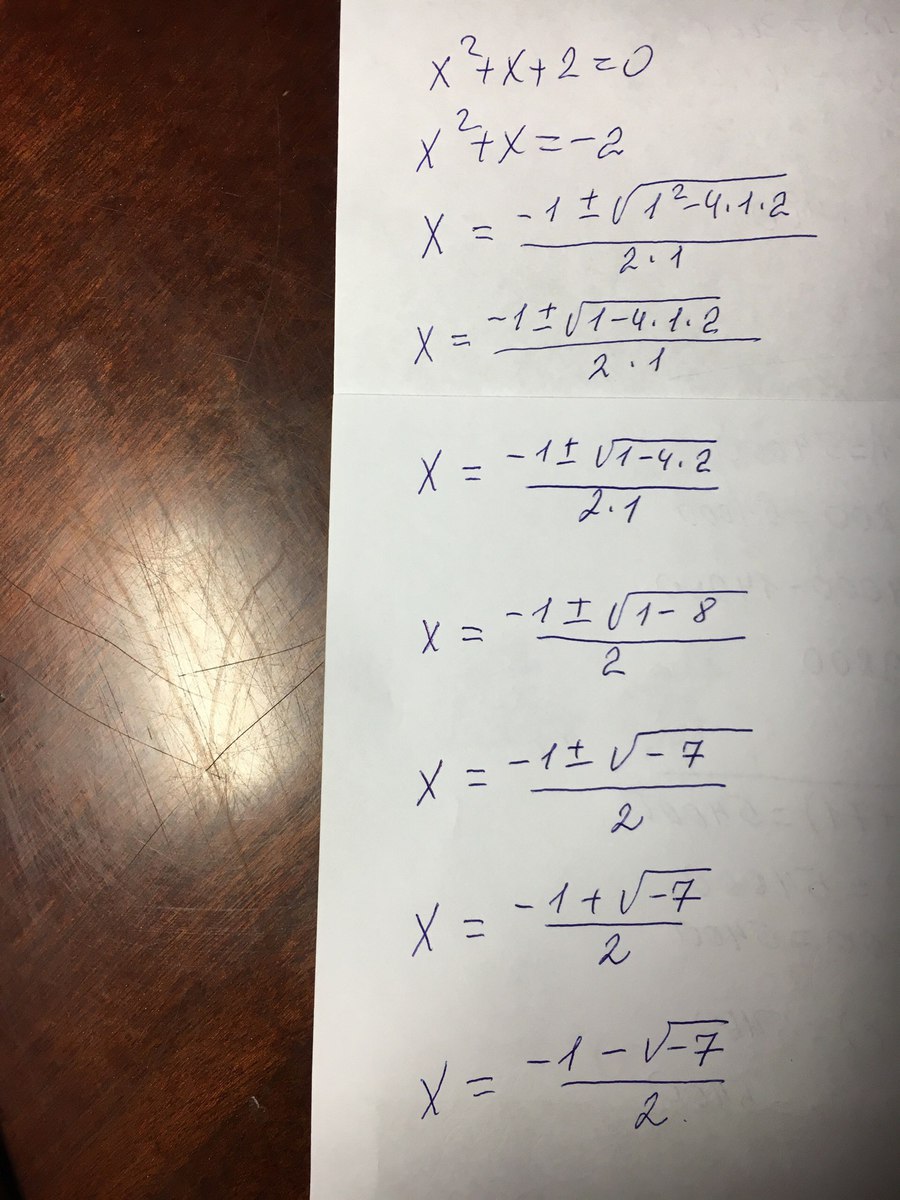 x²+x+2=0
x²+x=-2
x = (-1±√(1²-4·1·2))/(2·1)
x = (-1±√(1-4·1·2))/(2·1)
x = (-1±√(1-4·2))/(2·1)
x = (-1±√(1-8))/2
x = (-1±√(-7))/2
x = (-1+√(-7))/2
x = (-1-√(-7))/2.